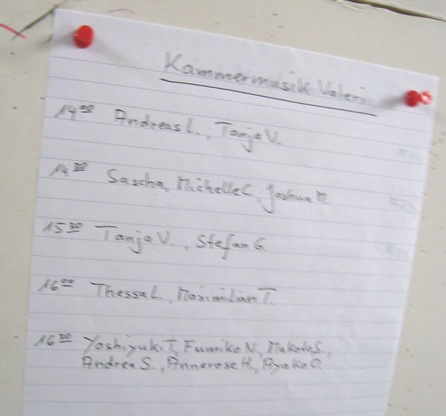 Kammermusik Valeri
14⁰⁰ Andreas L., Tanja V.
14³⁰ Sascha, Michelle C., Joshua M.
15³⁰ Tanja V., Stefan G.
16⁰⁰ Thessa L., Maximilian T.
16³⁰ Yoshiyuki T., Fumiko N., Makoto S.,
Andrea S., Annerose H., Ayako O.